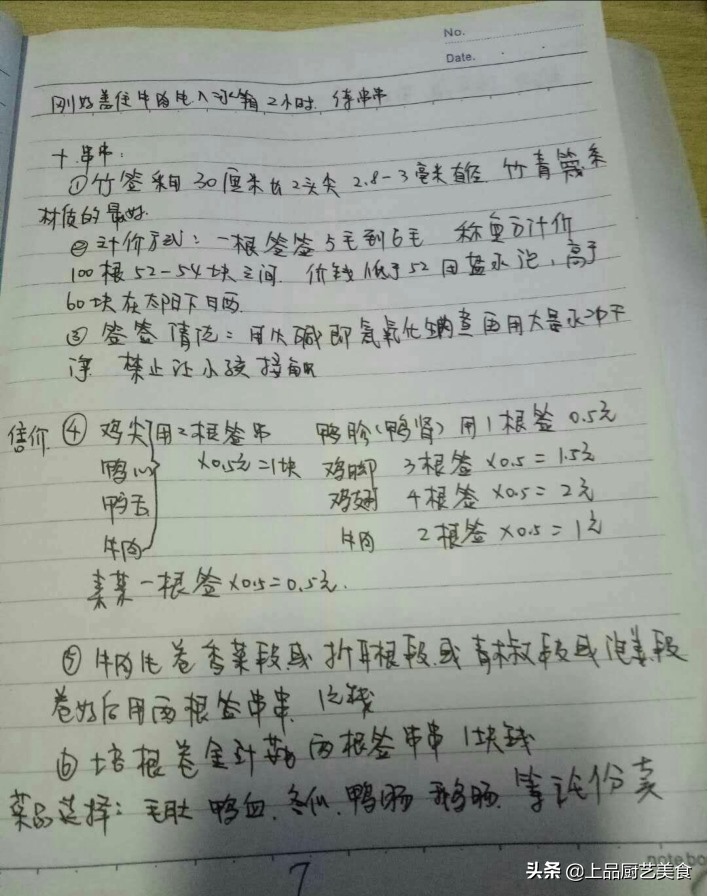 No.
Date.
刚好盖住牛肉片入冰箱2小时. 待串串
十.串串:
①竹签采用30厘米长2头尖 2.8-3毫米直径 竹青篾条
材质的最好.
②计价方式: 一根签签5毛到6毛 称重方计价
100根52-54块之间. 价钱低于52用盐水泡, 高于
60块在太阳下晒
③签签清洗: 用火碱即氢氧化钠煮 再用大量水冲干
净 禁止让小孩接触
售价 ④ 鸡尖 用2根签串 鸭胗(鸭肾) 用1根签 0.5元
鸭心 ×0.5元=1块 鸡脚 3根签×0.5=1.5元
鸭舌 鸡翅 4根签×0.5=2元
牛肉 牛肉 2根签×0.5=1元
素菜一根签×0.5=0.5元.
⑤牛肉片卷香菜段或折耳根段.或青椒段或泡姜段
卷好后用两根签串串. 1元钱
⑥培根卷金针菇 两根签串串 1块钱
菜品选择: 毛肚 鸭血. 冬瓜. 鸭肠 鹅肠. 等论份卖
7
notebo
头条 @上品厨艺美食